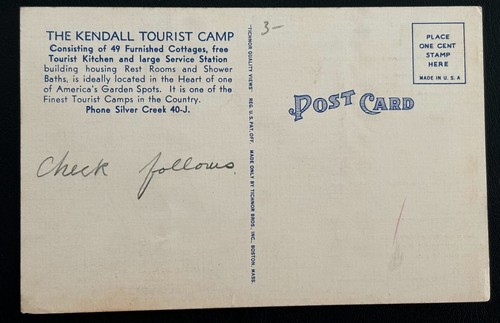 THE KENDALL TOURIST CAMP
Consisting of 49 Furnished Cottages, free
Tourist Kitchen and large Service Station
building housing Rest Rooms and Shower
Baths, is ideally located in the Heart of one
of America's Garden Spots. It is one of the
Finest Tourist Camps in the Country.
Phone Silver Creek 40-J.
Check follows.
3-
"TICHNOR QUALITY VIEWS" REG. U. S. PAT. OFF. MADE ONLY BY TICHNOR BROS., INC., BOSTON, MASS.
POST CARD
PLACE
ONE CENT
STAMP
HERE
MADE IN U. S. A